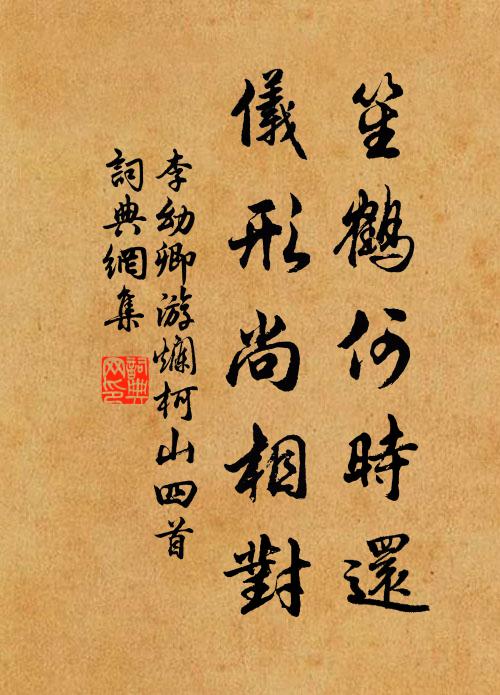 笙鶴何時還
儀形尚相對
李幼卿游爛柯山四首
詞典網集
詞典
网印